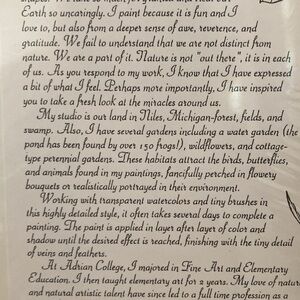 Earth so uncaringly. I paint because it is fun and I
love to, but also from a deeper sense of awe, reverence, and
gratitude. We fail to understand that we are not distinct from
nature. We are a part of it. Nature is not "out there", it is in each
of us. As you respond to my work, I know that I have expressed
a bit of what I feel. Perhaps more importantly, I have inspired
you to take a fresh look at the miracles around us.
My studio is our land in Niles, Michigan-forest, fields, and
swamp. Also, I have several gardens including a water garden (the
pond has been found by over 150 frogs!), wildflowers, and cottage-
type perennial gardens. These habitats attract the birds, butterflies,
and animals found in my paintings, fancifully perched in flowery
bouquets or realistically portrayed in their environment.
Working with transparent watercolors and tiny brushes in
this highly detailed style, it often takes several days to complete a
painting. The paint is applied in layer after layer of color and
shadow until the desired effect is reached, finishing with the tiny detail
of veins and feathers.
At Adrian College, I majored in Fine Art and Elementary
Education. I then taught elementary art for 2 years. My love of nature
and natural artistic talent have since led to a full time profession as a